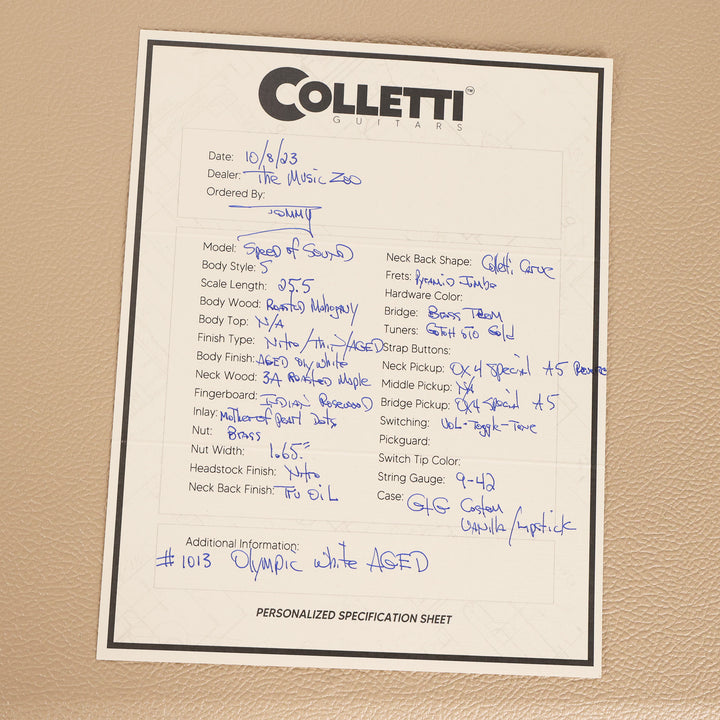 COLLETTI™
GUITARS
Date: 10/8/23
Dealer: The Music Zoo
Ordered By:
Tommy
Model: Speed of Sound
Body Style: S
Scale Length: 25.5
Body Wood: Roasted Mahogany
Body Top: N/A
Finish Type: Nitro/Thin/AGED
Body Finish: AGED Oly White
Neck Wood: 3A Roasted Maple
Fingerboard: INDIAN Rosewood
Inlay: Mother of pearl Dots
Nut: Brass
Nut Width: 1.65"
Headstock Finish: Nitro
Neck Back Finish: Tru Oil
Neck Back Shape: Colletti Carve
Frets: Pyramid Jumbo
Hardware Color:
Bridge: Brass Trem
Tuners: Gotoh 510 Gold
Strap Buttons:
Neck Pickup: OX4 Special A5 Reverse
Middle Pickup: N/A
Bridge Pickup: OX4 Special A5
Switching: Vol-Toggle-Tone
Pickguard:
Switch Tip Color:
String Gauge: 9-42
Case: G&G Custom
Vanilla/Lipstick
Additional Information:
#1013 Olympic White AGED
PERSONALIZED SPECIFICATION SHEET